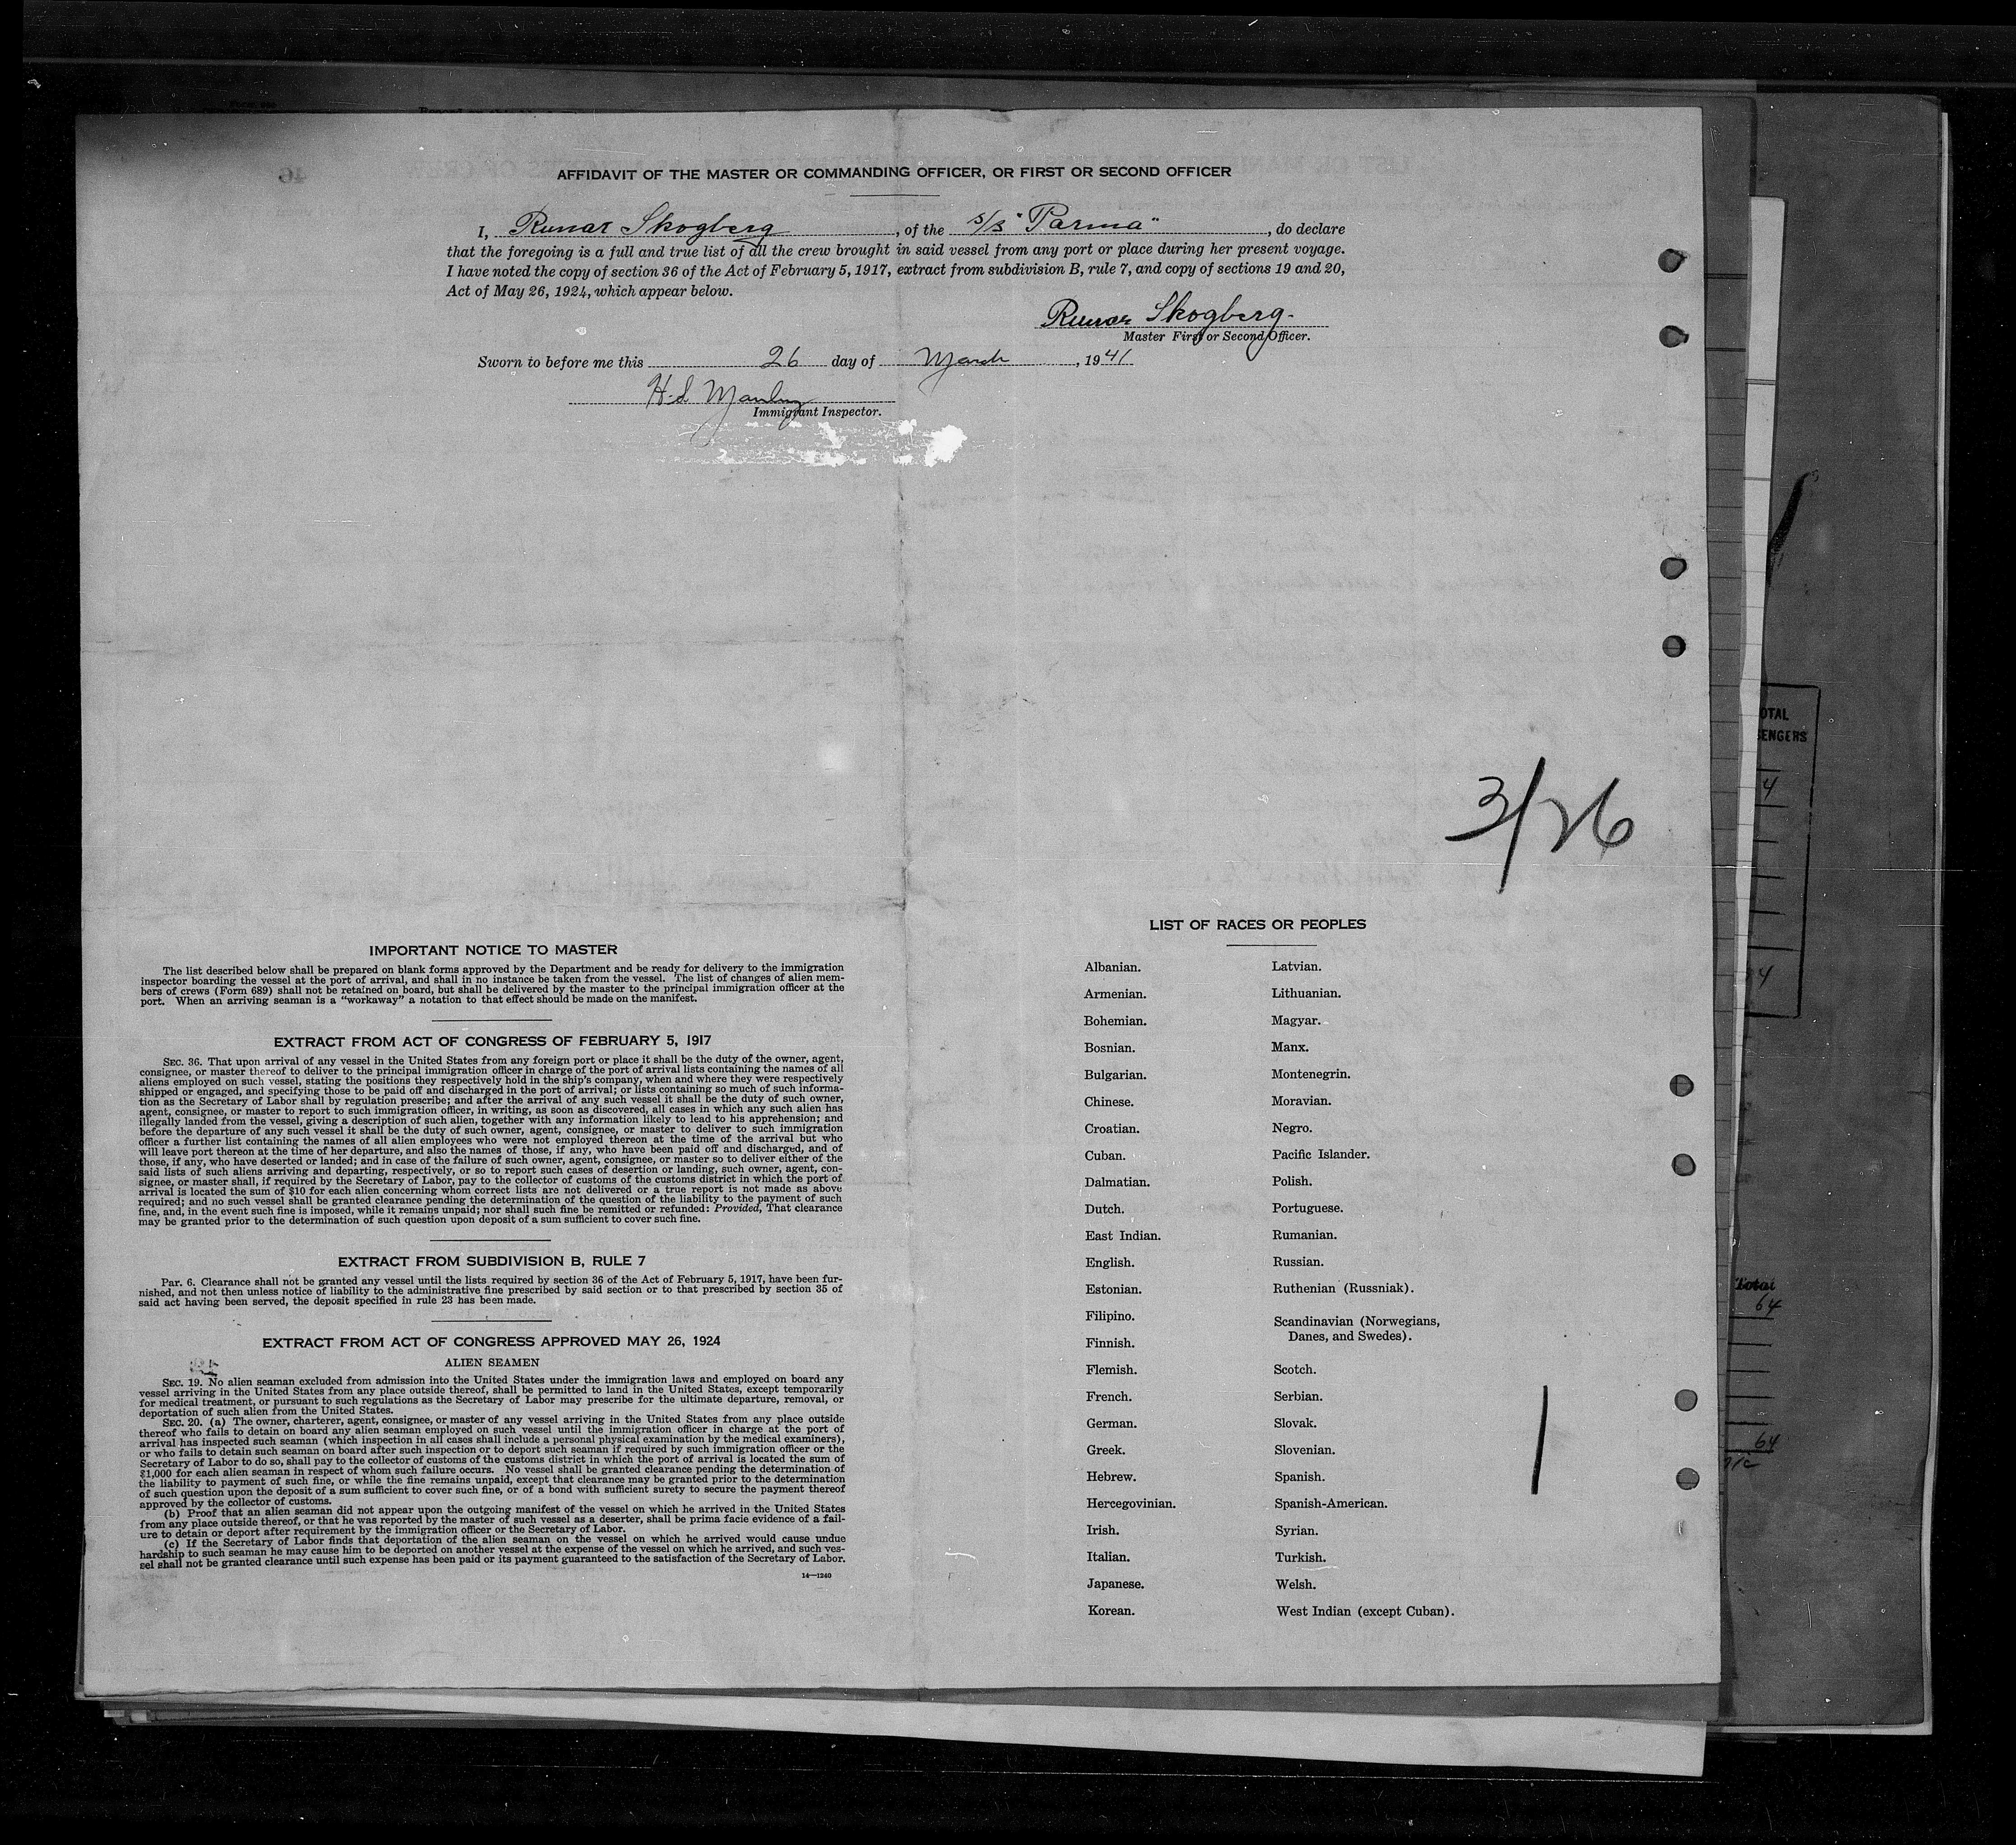 AFFIDAVIT OF THE MASTER OR COMMANDING OFFICER, OR FIRST OR SECOND OFFICER
I, Runar Skogberg, of the s/s "Parma", do declare
that the foregoing is a full and true list of all the crew brought in said vessel from any port or place during her present voyage.
I have noted the copy of section 36 of the Act of February 5, 1917, extract from subdivision B, rule 7, and copy of sections 19 and 20,
Act of May 26, 1924, which appear below.
Runar Skogberg.
Master First or Second Officer.
Sworn to before me this 26 day of March, 1941
Immigrant Inspector.
OTAL
ENGERS
4
3/26
IMPORTANT NOTICE TO MASTER
The list described below shall be prepared on blank forms approved by the Department and be ready for delivery to the immigration
inspector boarding the vessel at the port of arrival, and shall in no instance be taken from the vessel. The list of changes of alien mem-
bers of crews (Form 689) shall not be retained on board, but shall be delivered by the master to the principal immigration officer at the
port. When an arriving seaman is a "workaway" a notation to that effect should be made on the manifest.
EXTRACT FROM ACT OF CONGRESS OF FEBRUARY 5, 1917
SEC. 36. That upon arrival of any vessel in the United States from any foreign port or place it shall be the duty of the owner, agent,
consignee, or master thereof to deliver to the principal immigration officer in charge of the port of arrival lists containing the names of all
aliens employed on such vessel, stating the positions they respectively hold in the ship's company, when and where they were respectively
shipped or engaged, and specifying those to be paid off and discharged in the port of arrival; or lists containing so much of such informa-
tion as the Secretary of Labor shall by regulation prescribe; and after the arrival of any such vessel it shall be the duty of such owner,
agent, consignee, or master to report to such immigration officer, in writing, as soon as discovered, all cases in which any such alien has
illegally landed from the vessel, giving a description of such alien, together with any information likely to lead to his apprehension; and
before the departure of any such vessel it shall be the duty of such owner, agent, consignee, or master to deliver to such immigration
officer a further list containing the names of all alien employees who were not employed thereon at the time of the arrival but who
will leave port thereon at the time of her departure, and also the names of those, if any, who have been paid off and discharged, and of
those, if any, who have deserted or landed; and in case of the failure of such owner, agent, consignee, or master so to deliver either of the
said lists of such aliens arriving and departing, respectively, or so to report such cases of desertion or landing, such owner, agent, con-
signee, or master shall, if required by the Secretary of Labor, pay to the collector of customs of the customs district in which the port of
arrival is located the sum of $10 for each alien concerning whom correct lists are not delivered or a true report is not made as above
required; and no such vessel shall be granted clearance pending the determination of the question of the liability to the payment of such
fine, and, in the event such fine is imposed, while it remains unpaid; nor shall such fine be remitted or refunded: Provided, That clearance
may be granted prior to the determination of such question upon deposit of a sum sufficient to cover such fine.
EXTRACT FROM SUBDIVISION B, RULE 7
Par. 6. Clearance shall not be granted any vessel until the lists required by section 36 of the Act of February 5, 1917, have been fur-
nished, and not then unless notice of liability to the administrative fine prescribed by said section or to that prescribed by section 35 of
said act having been served, the deposit specified in rule 23 has been made.
EXTRACT FROM ACT OF CONGRESS APPROVED MAY 26, 1924
ALIEN SEAMEN
SEC. 19. No alien seaman excluded from admission into the United States under the immigration laws and employed on board any
vessel arriving in the United States from any place outside thereof, shall be permitted to land in the United States, except temporarily
for medical treatment, or pursuant to such regulations as the Secretary of Labor may prescribe for the ultimate departure, removal, or
deportation of such alien from the United States.
SEC. 20. (a) The owner, charterer, agent, consignee, or master of any vessel arriving in the United States from any place outside
thereof who fails to detain on board any alien seaman employed on such vessel until the immigration officer in charge at the port of
arrival has inspected such seaman (which inspection in all cases shall include a personal physical examination by the medical examiners),
or who fails to detain such seaman on board after such inspection or to deport such seaman if required by such immigration officer or the
Secretary of Labor to do so, shall pay to the collector of customs of the customs district in which the port of arrival is located the sum of
$1,000 for each alien seaman in respect of whom such failure occurs. No vessel shall be granted clearance pending the determination of
the liability to payment of such fine, or while the fine remains unpaid, except that clearance may be granted prior to the determination
of such question upon the deposit of a sum sufficient to cover such fine, or of a bond with sufficient surety to secure the payment thereof
approved by the collector of customs.
(b) Proof that an alien seaman did not appear upon the outgoing manifest of the vessel on which he arrived in the United States
from any place outside thereof, or that he was reported by the master of such vessel as a deserter, shall be prima facie evidence of a fail-
ure to detain or deport after requirement by the immigration officer or the Secretary of Labor.
(c) If the Secretary of Labor finds that deportation of the alien seaman on the vessel on which he arrived would cause undue
hardship to such seaman he may cause him to be deported on another vessel at the expense of the vessel on which he arrived, and such ves-
sel shall not be granted clearance until such expense has been paid or its payment guaranteed to the satisfaction of the Secretary of Labor.
14—1240
LIST OF RACES OR PEOPLES
Albanian. Latvian.
Armenian. Lithuanian.
Bohemian. Magyar.
Bosnian. Manx.
Bulgarian. Montenegrin.
Chinese. Moravian.
Croatian. Negro.
Cuban. Pacific Islander.
Dalmatian. Polish.
Dutch. Portuguese.
East Indian. Rumanian.
English. Russian.
Estonian. Ruthenian (Russniak).
Filipino. Scandinavian (Norwegians,
Finnish. Danes, and Swedes).
Flemish. Scotch.
French. Serbian.
German. Slovak.
Greek. Slovenian.
Hebrew. Spanish.
Hercegovinian. Spanish-American.
Irish. Syrian.
Italian. Turkish.
Japanese. Welsh.
Korean. West Indian (except Cuban).
Total
64
64